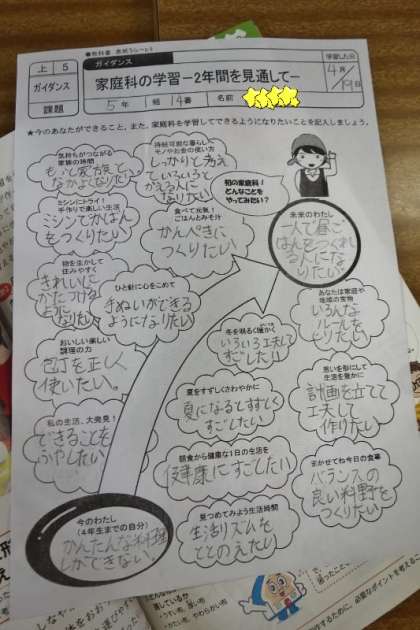 ●教科書 表紙うら～p.1
上 5
ガイダンス
課題
ガイダンス
家庭科の学習－2年間を見通して－
学習した日
4月
19日
5年 組 14番 名前
★今のあなたができること、また、家庭科を学習してできるようになりたいことを記入しましょう。
気持ちがつながる
家族の時間
もっと家族と
なかよくなりたい
持続可能な暮らしへ
モノやお金の使い方
しっかりと考え
ていろいろと
かえる人に
なりたい
初の家庭科！
どんなことを
やってみたい？
ミシンにトライ！
手作りで楽しい生活
ミシンでかばん
をつくりたい
食べて元気！
ごはんとみそ汁
かんぺきに
つくりたい
未来のわたし
一人で昼ご
はんをつくれ
る人にな
りたい
物を生かして
住みやすく
きれいに
かたづける
ように
なりたい
ひと針に心をこめて
手ぬいができる
ようになりたい
あなたは家庭や
地域の宝物
いろんな
ルールを
とりたい
冬を明るく暖かく
いろいろ工夫して
すごしたい
おいしい楽しい
調理の力
包丁を正しく
使いたい。
思いを形にして
生活を豊かに
計画を立てて
工夫して
作りたい
夏をすずしくさわやかに
夏になるとすずしく
すごしたい
私の生活、大発見！
できることを
ふやしたい
朝食から健康な1日の生活を
健康にすごしたい
まかせてね今日の食事
バランスの
良い料理を
つくりたい
今のわたし
（4年生までの自分）
かんたんな料理
しかできない。
見つめてみよう生活時間
生活リズムを
ととのえたい